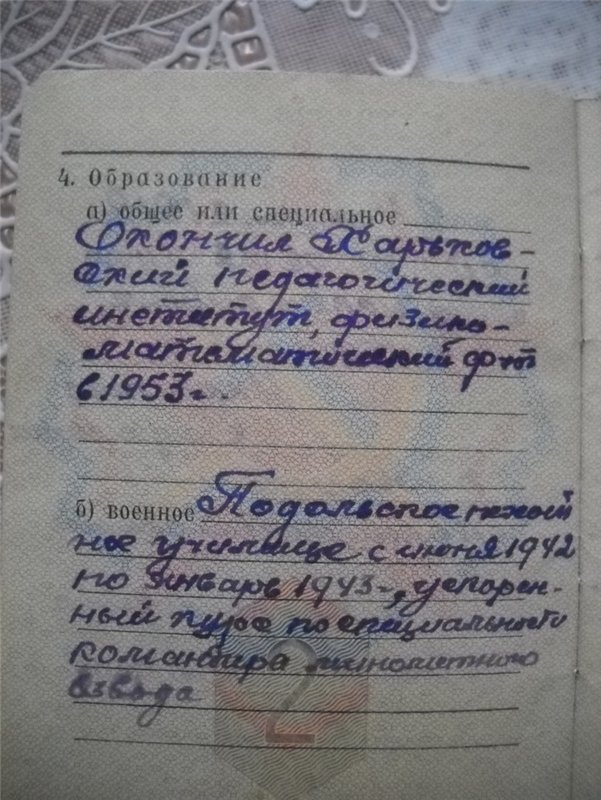 4. Образование
а) общее или специальное
Окончил Харьков-
ский педагогический
институт, физико-
математический ф-т
в 1953 г.
б) военное Подольское пехот
ное училище с июня 1942
по январь 1943 г., ускорен-
ный курс по специальности
командира минометного
взвода
2